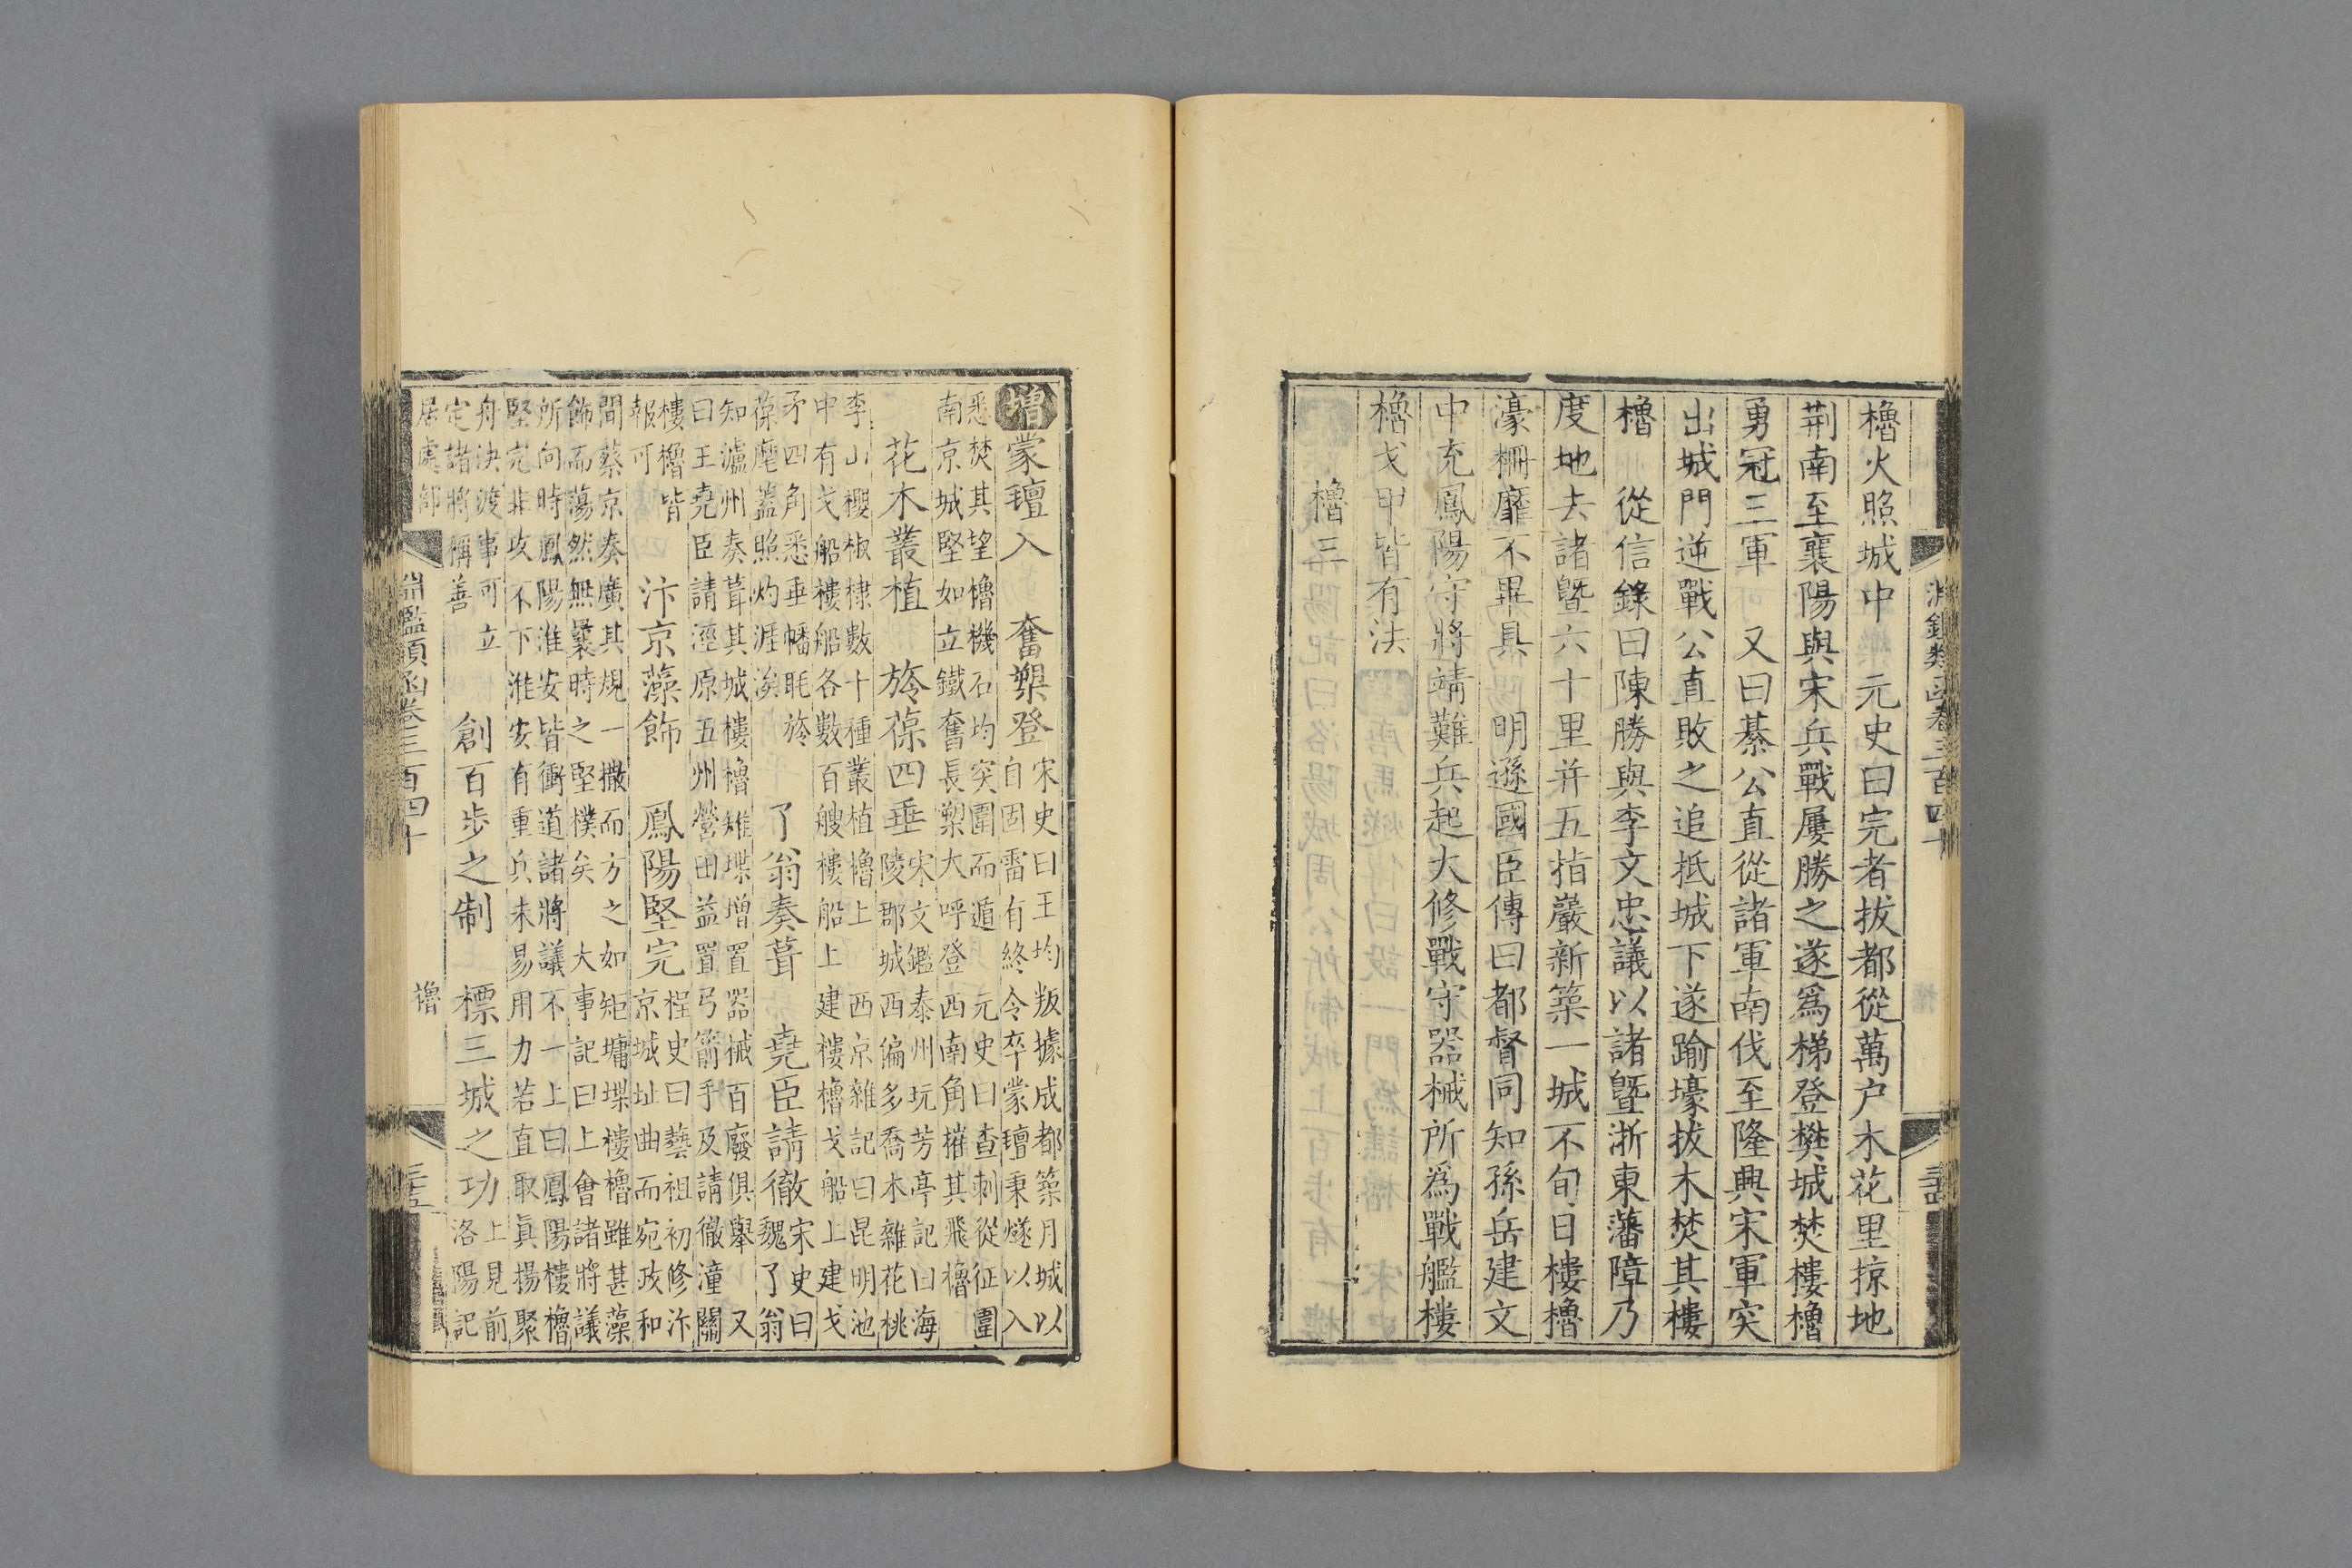 淵鑑類函卷三百四十
櫓火照城中　元史曰完者拔都從萬户木花里掠地
荆南至襄陽與宋兵戰屢勝之遂爲梯登樊城焚樓櫓
勇冠三軍　又曰綦公直從諸軍南伐至隆興宋軍突
出城門逆戰公直敗之追抵城下遂踰壕拔木焚其樓
櫓　從信錄曰陳勝與李文忠議以諸暨浙東藩障乃
度地去諸暨六十里并五指巖新築一城不旬日樓櫓
濠柵靡不畢具　明遜國臣傳曰都督同知孫岳建文
中充鳳陽守將靖難兵起大修戰守器械所爲戰艦樓
櫓戈甲皆有法
櫓三
增蒙氊入　奮槊登
宋史曰王均叛據成都築月城以
自固雷有終令卒蒙氊秉燧以入
悉焚其望櫓機石均突圍而遁　元史曰查刺從征圍
南京城堅如立鐵奮長槊大呼登西南角摧其飛櫓
花木叢植　旍葆四垂
宋文鑑泰州玩芳亭記曰海
陵郡城西偏多喬木雜花桃
李山櫻椒棣數十種叢植櫓上　西京雜記曰昆明池
中有戈船樓船各數百艘樓船上建樓櫓戈船上建戈
矛四角悉垂幡眊旍
葆麾蓋照灼涯涘
了翁奏葺　堯臣請徹
宋史曰
魏了翁
知瀘州奏葺其城樓櫓雉堞增置器械百廢俱舉　又
曰王堯臣請涇原五州營田益置弓箭手及請徹潼關
樓櫓皆
報可
汴京藻飾　鳳陽堅完
桯史曰藝祖初修汴
京城址曲而宛政和
間蔡京奏廣其規一撒而方之如矩墉堞樓櫓雖甚藻
飾而蕩然無曩時之堅樸矣　大事記曰上會諸將議
所向時鳳陽淮安皆衝道諸將議不一上曰鳳陽樓櫓
堅完非攻不下淮安有重兵未易用力若直取眞揚聚
舟決渡事可立
定諸將稱善
創百步之制　標三城之功
上見前
洛陽記
居處部
淵鑑類函卷三百四十
櫓